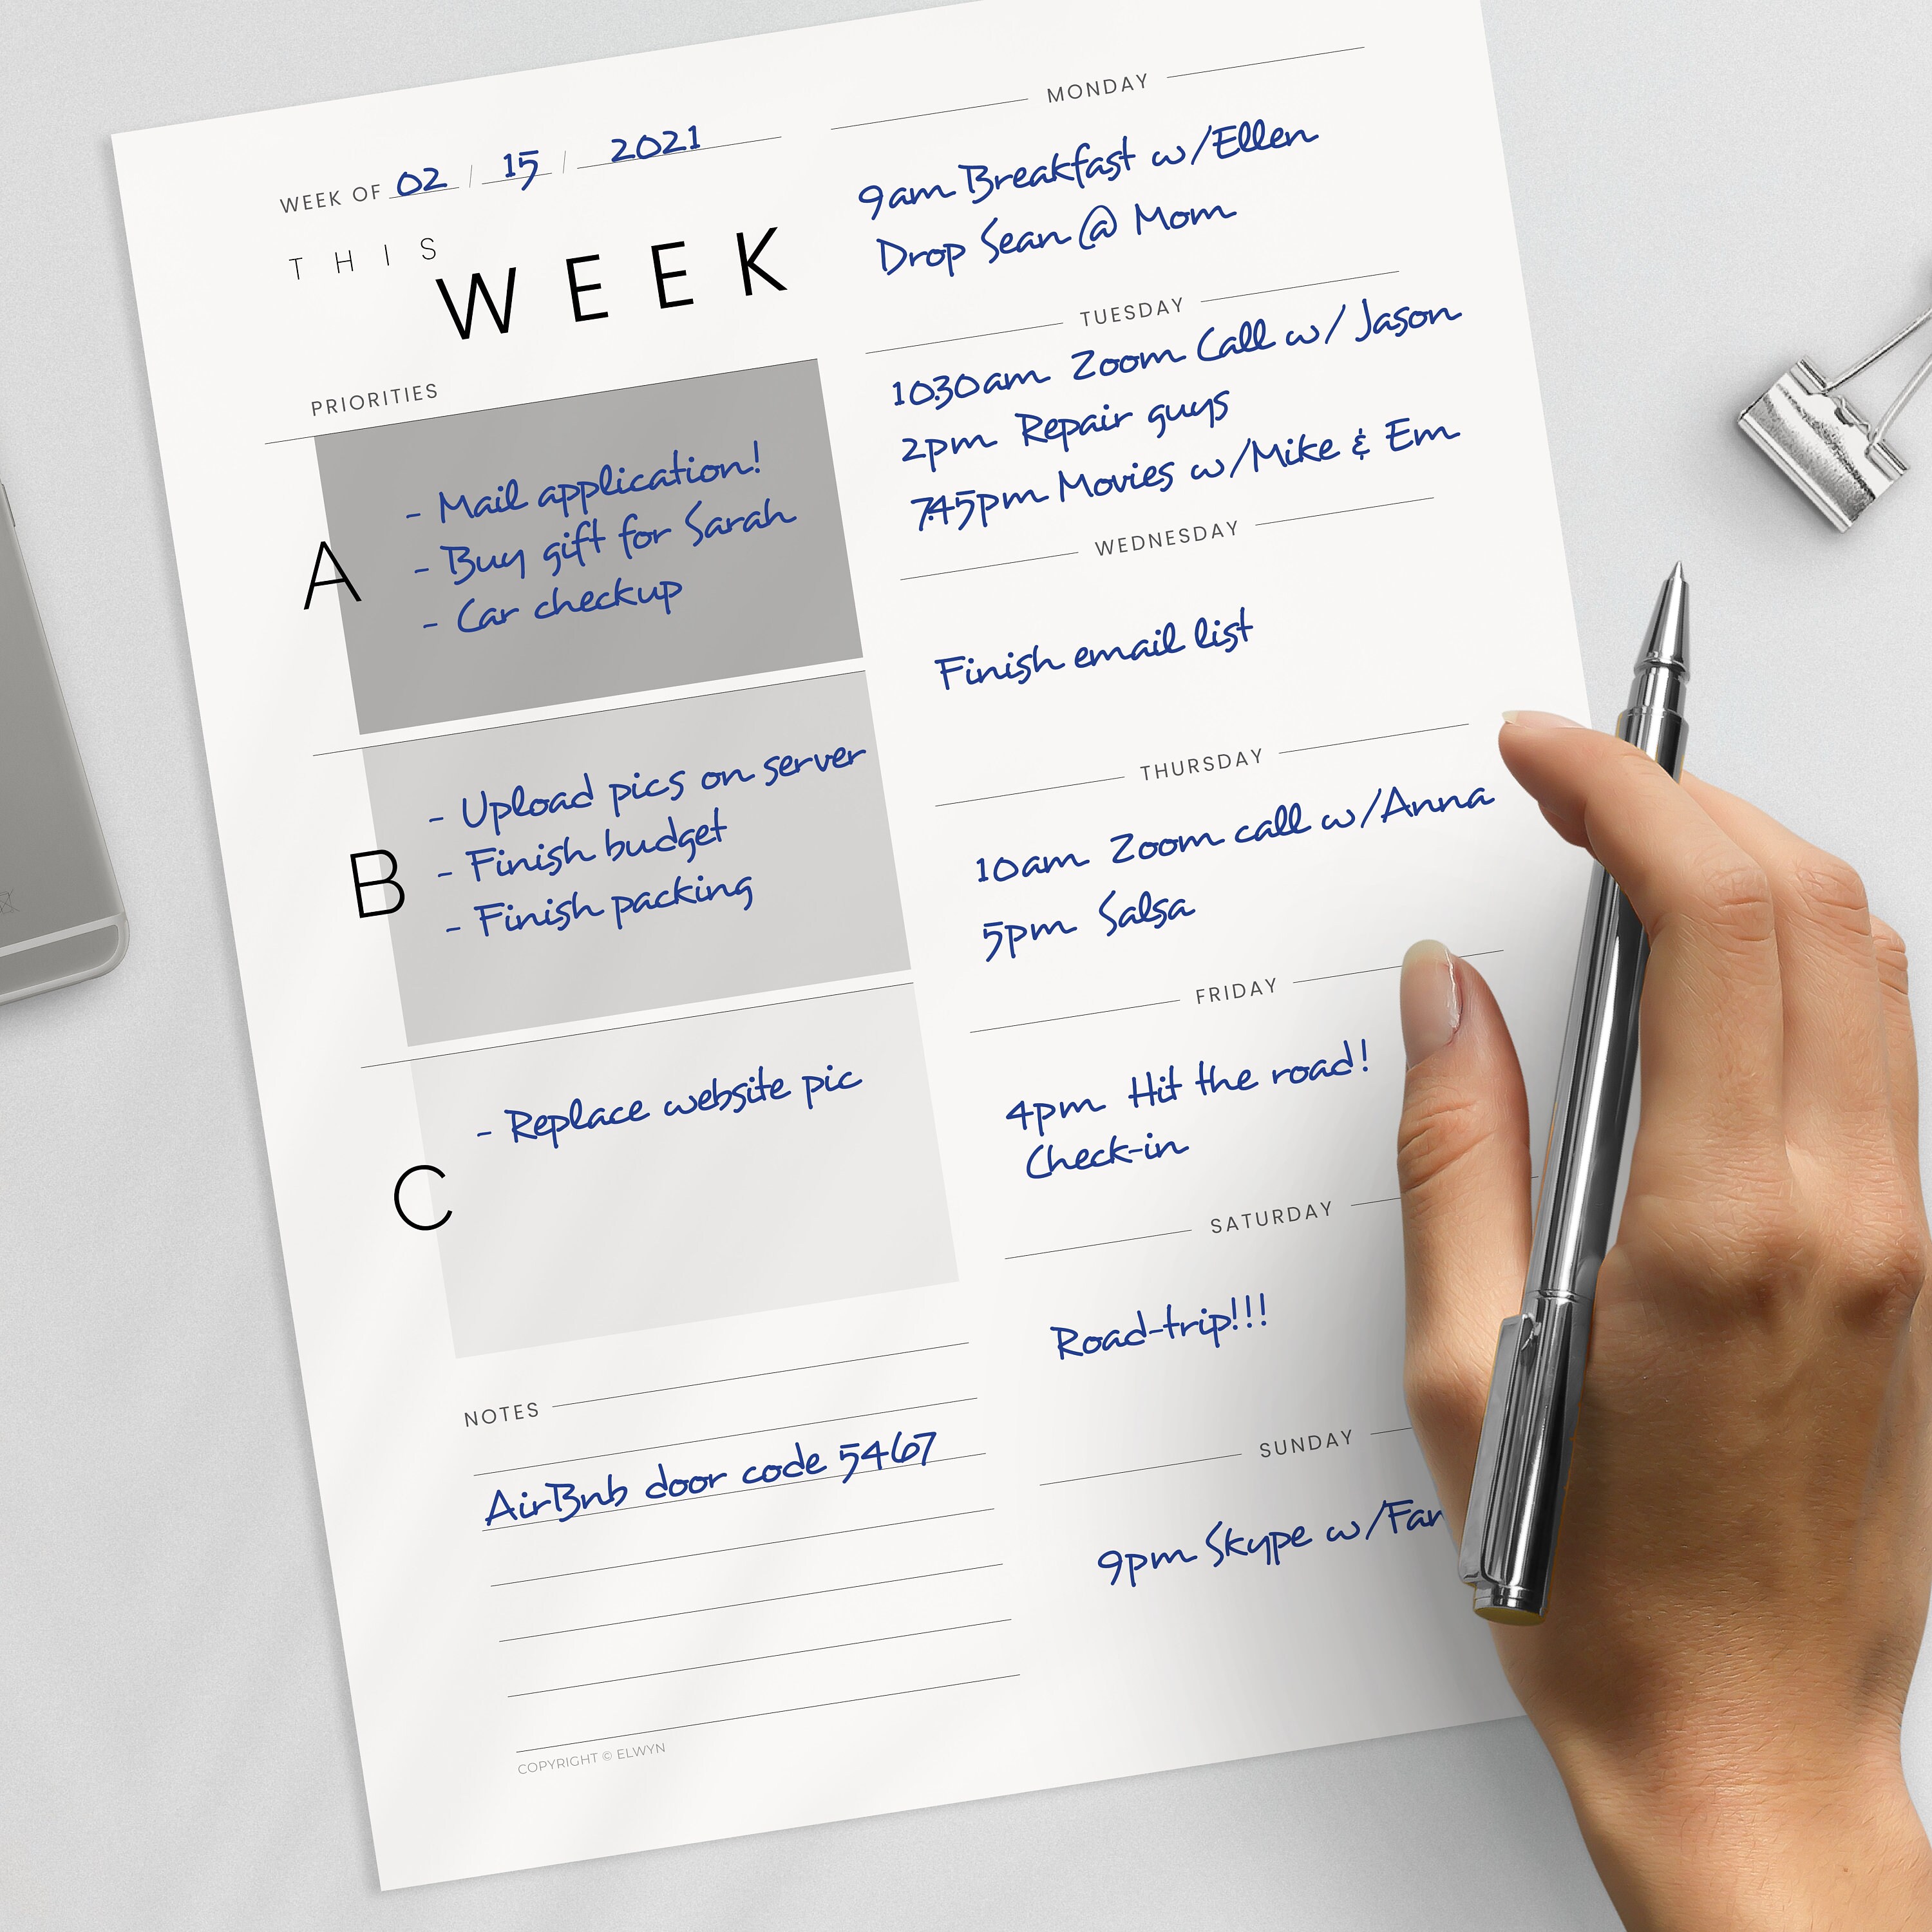 WEEK OF 02 / 15 / 2021
THIS
WEEK
PRIORITIES
A
- Mail application!
- Buy gift for Sarah
- Car checkup
B
- Upload pics on server
- Finish budget
- Finish packing
C
- Replace website pic
NOTES
AirBnb door code 5467
COPYRIGHT © ELWYN
MONDAY
9am Breakfast w/Ellen
Drop Sean @ Mom
TUESDAY
10:30am Zoom Call w/ Jason
2pm Repair guys
7:45pm Movies w/Mike & Em
WEDNESDAY
Finish email list
THURSDAY
10am Zoom call w/Anna
5pm Salsa
FRIDAY
4pm Hit the road!
Check-in
SATURDAY
Road-trip!!!
SUNDAY
9pm Skype w/